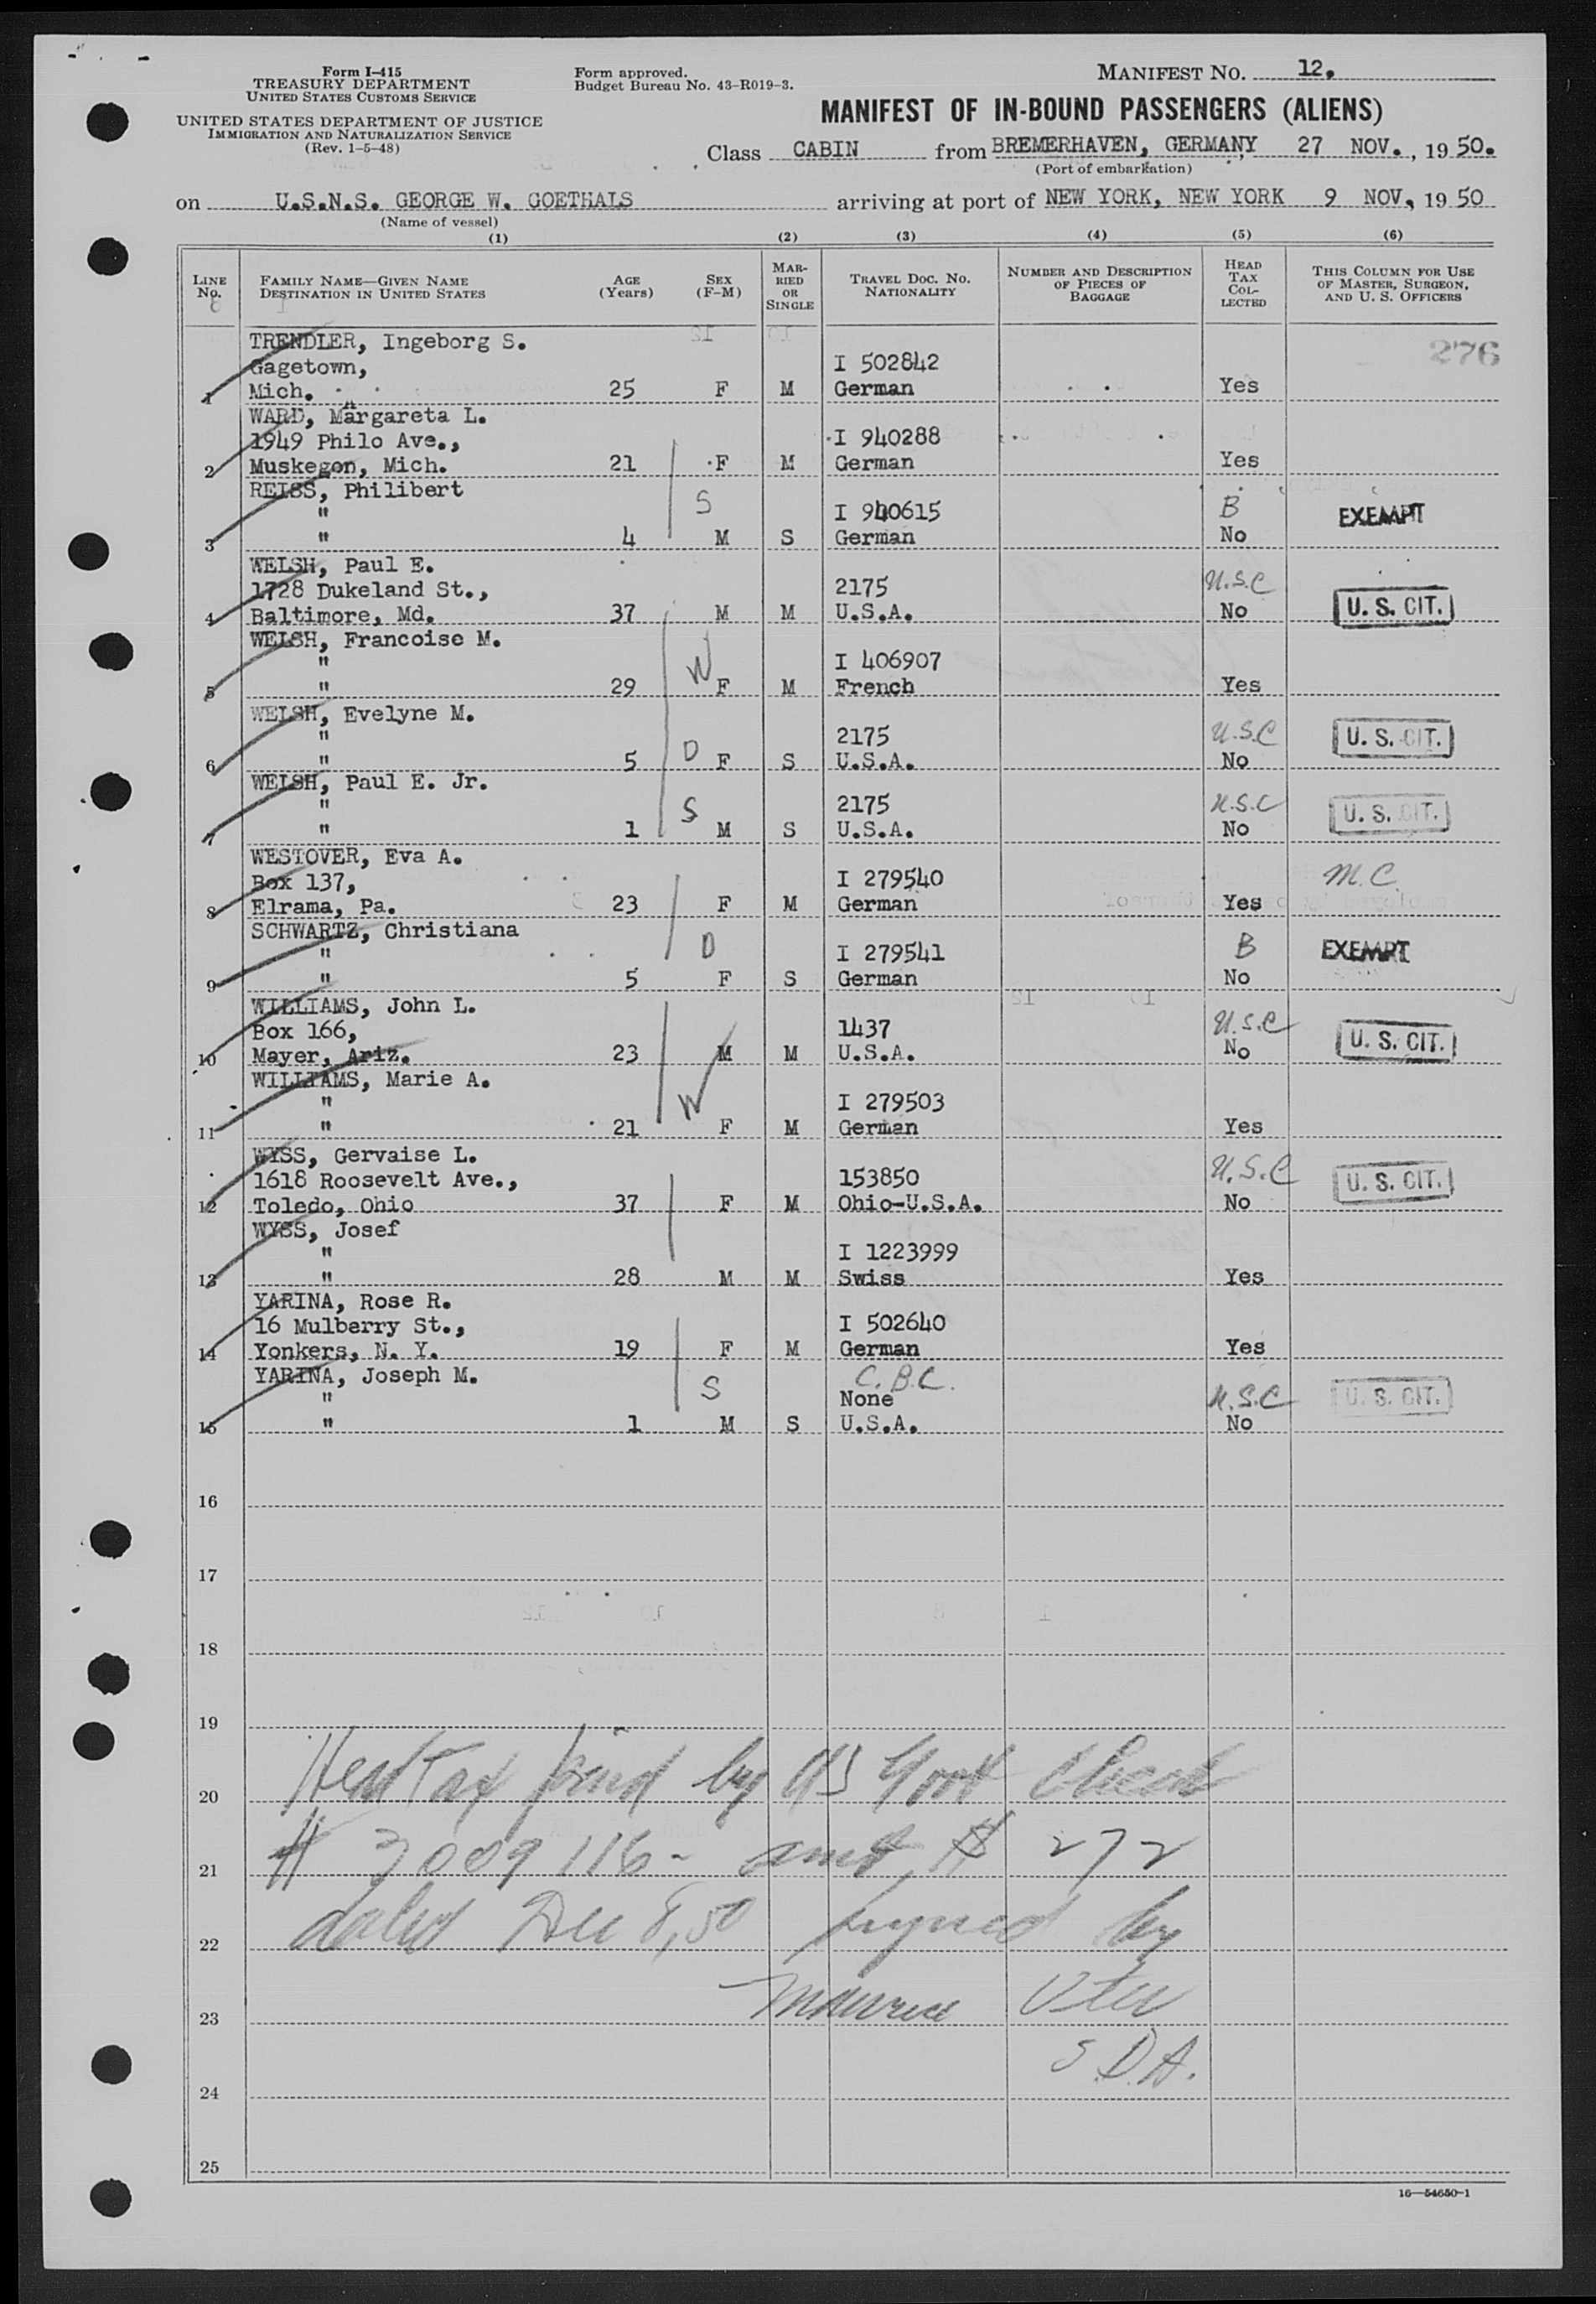 Form I-415
TREASURY DEPARTMENT
UNITED STATES CUSTOMS SERVICE
UNITED STATES DEPARTMENT OF JUSTICE
IMMIGRATION AND NATURALIZATION SERVICE
(Rev. 1-5-48)
Form approved.
Budget Bureau No. 43-R019-3.
MANIFEST NO. 12.
MANIFEST OF IN-BOUND PASSENGERS (ALIENS)
Class CABIN from BREMERHAVEN, GERMANY, 27 NOV., 1950.
(Port of embarkation)
on U.S.N.S. GEORGE W. GOETHALS arriving at port of NEW YORK, NEW YORK 9 NOV., 1950
(Name of vessel)
(1) (2) (3) (4) (5) (6)
LINE No. FAMILY NAME—GIVEN NAME DESTINATION IN UNITED STATES AGE (Years) SEX (F-M) MARRIED OR SINGLE TRAVEL DOC. NO. NATIONALITY NUMBER AND DESCRIPTION OF PIECES OF BAGGAGE HEAD TAX COLLECTED THIS COLUMN FOR USE OF MASTER, SURGEON, AND U. S. OFFICERS
276
TRENDLER, Ingeborg S.
Gagetown, I 502842
1 Mich. 25 F M German Yes
WARD, Margareta L.
1949 Philo Ave., I 940288
2 Muskegon, Mich. 21 F M German Yes
REISS, Philibert
" S I 940615 B EXEMPT
3 " 4 M S German No
WELSH, Paul E.
1728 Dukeland St., 2175 U.S.C
4 Baltimore, Md. 37 M M U.S.A. No U. S. CIT.
WELSH, Francoise M.
" W I 406907
5 " 29 F M French Yes
WELSH, Evelyne M.
" D 2175 U.S.C U. S. CIT.
6 " 5 F S U.S.A. No
WELSH, Paul E. Jr.
" S 2175 U.S.C U. S. CIT.
7 " 1 M S U.S.A. No
WESTOVER, Eva A.
Box 137, I 279540 M.C.
8 Elrama, Pa. 23 F M German Yes
SCHWARTZ, Christiana
" D I 279541 B EXEMPT
9 " 5 F S German No
WILLIAMS, John L.
Box 166, 1437 U.S.C U. S. CIT.
10 Mayer, Ariz. 23 M M U.S.A. No
WILLIAMS, Marie A.
" W I 279503
11 " 21 F M German Yes
WYSS, Gervaise L.
1618 Roosevelt Ave., 153850 U.S.C U. S. CIT.
12 Toledo, Ohio 37 F M Ohio-U.S.A. No
WYSS, Josef
" I 1223999
13 " 28 M M Swiss Yes
YARINA, Rose R.
16 Mulberry St., I 502640
14 Yonkers, N. Y. 19 F M German Yes
YARINA, Joseph M. C.B.C.
" S None U.S.C U. S. CIT.
15 " 1 M S U.S.A. No
16
17
18
19
20 Head Tax paid by US Govt Check
21 # 3009116- amt. $ 272
22 dated Dec 8, 50 signed by
23 Maurice
24 S.D.A.
25
16—54650-1